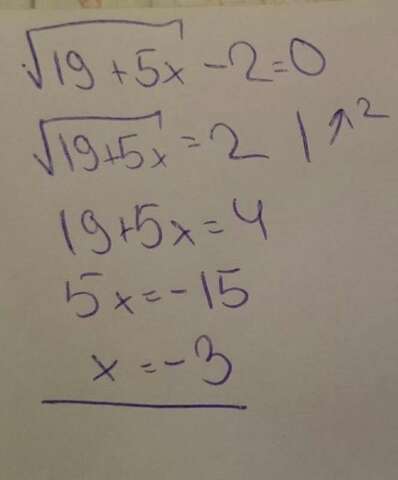 √19+5x -2=0
√19+5x =2 | ↑2
19+5x=4
5x=-15
x=-3